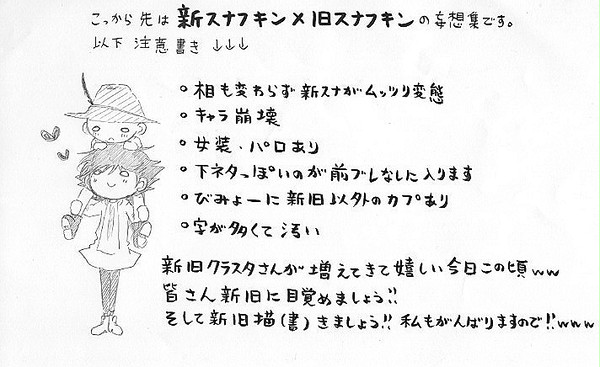 こっから先は新スナフキン×旧スナフキンの妄想集です。
以下 注意書き ↓↓↓
・相も変わらず新スナがムッツリ変態
・キャラ崩壊
・女装・パロあり
・下ネタっぽいのが前ブレなしに入ります
・びみょーに新旧以外のカプあり
・字が多くて汚い
新旧クラスタさんが増えてきて嬉しい今日この頃ww
皆さん新旧に目覚めましょう!!
そして新旧描(書)きましょう!! 私もがんばりますので!!www